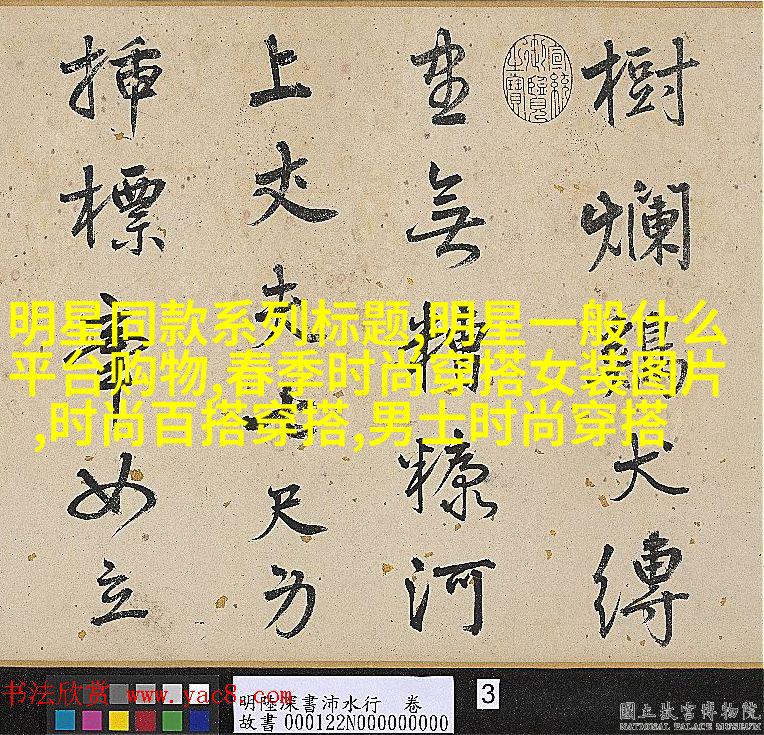 樹爛鷄犬縛
無糟糠河
上丈夫七尺
插標如立
明星同款系列标题,明星一般什么
平台购物,春季时尚穿搭女装图片
,时尚百搭穿搭,男士时尚穿搭
书法欣赏 www.yac8.com
明陸深書沛水行 卷
故書 000122N000000000
3
國立故宮博物院
NATIONAL PALACE MUSEUM